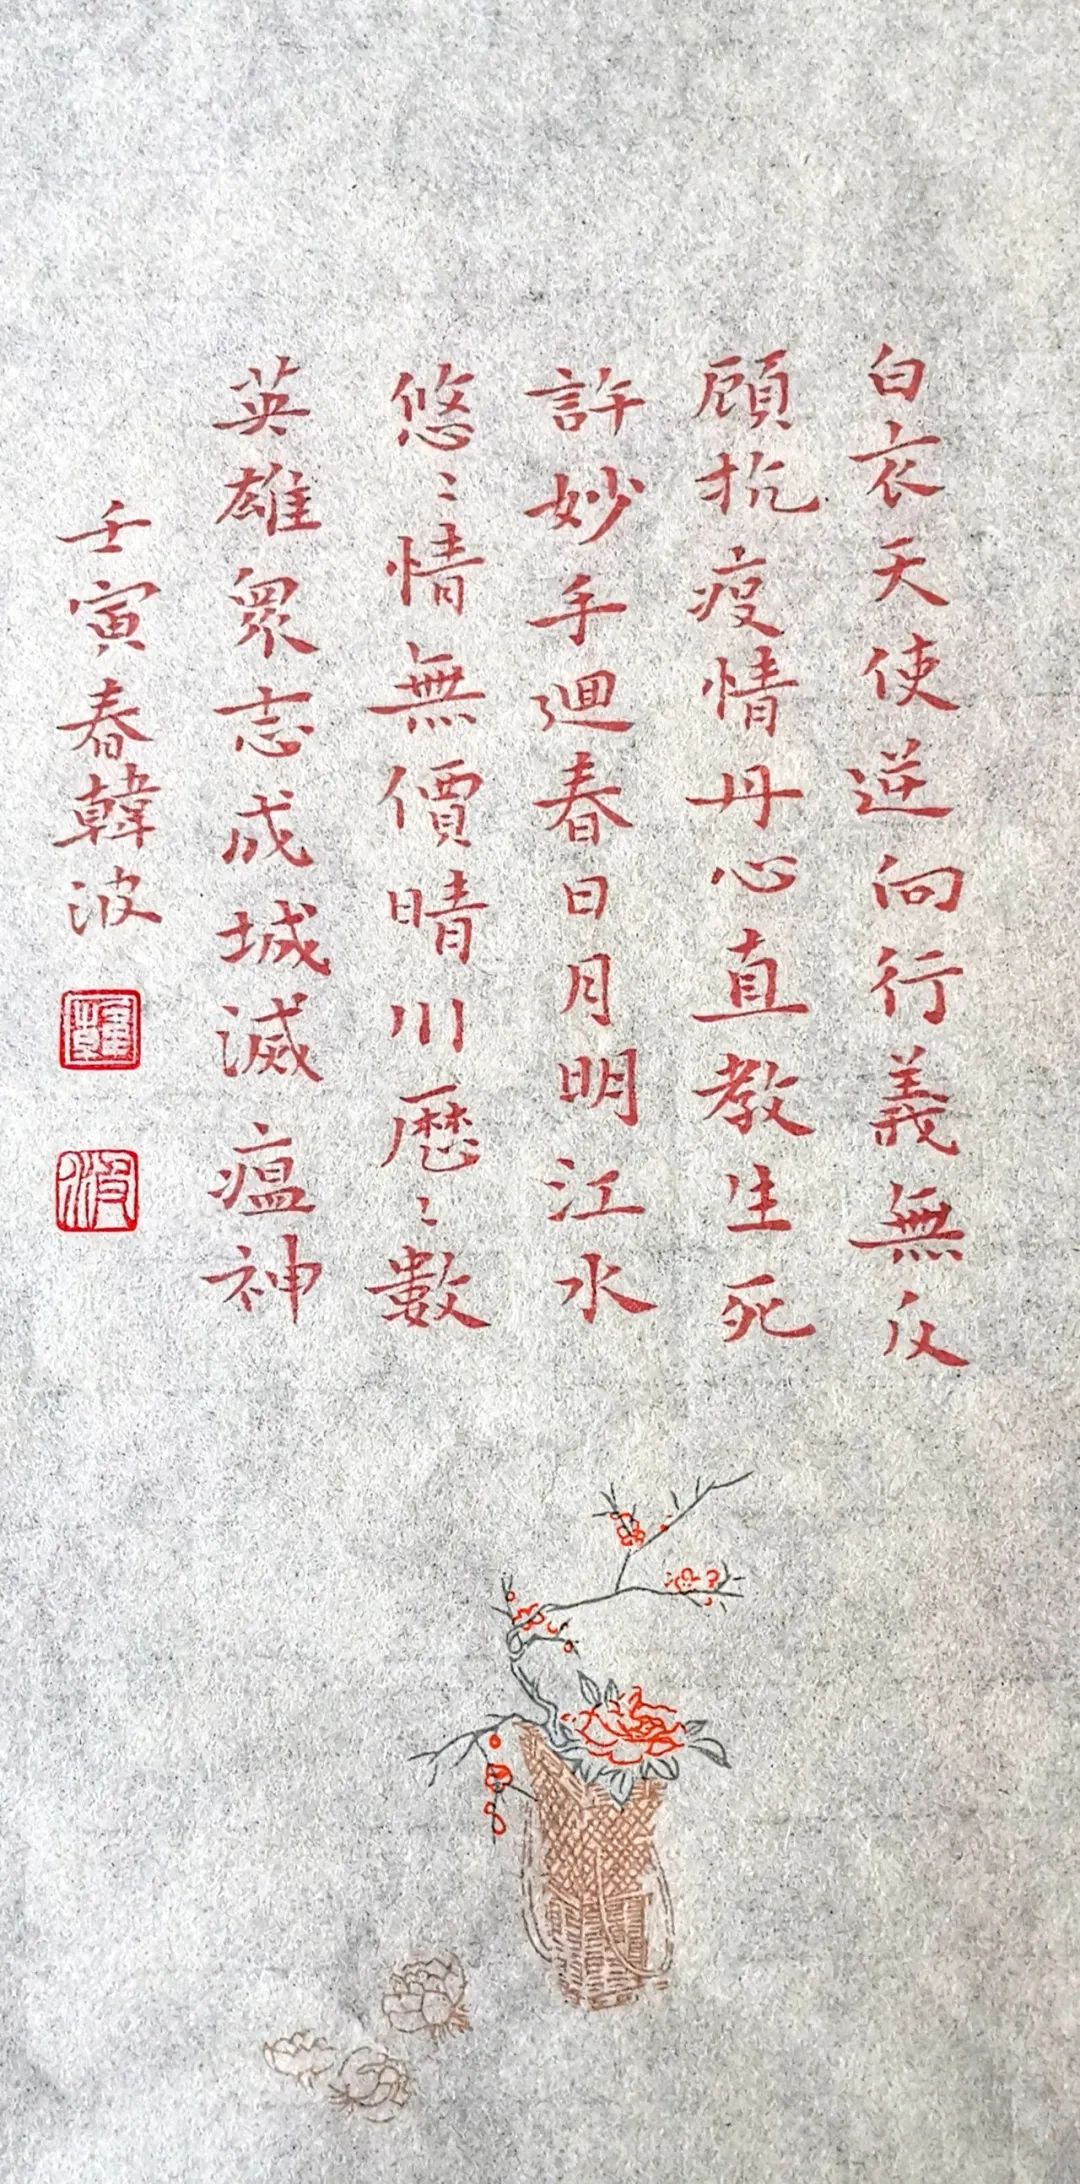 白衣天使逆向行義無反
顧抗疫情丹心直教生死
許妙手迴春日月明江水
悠〻情無價晴川歷〻數
英雄眾志成城滅瘟神
壬寅春韓波
韓
波